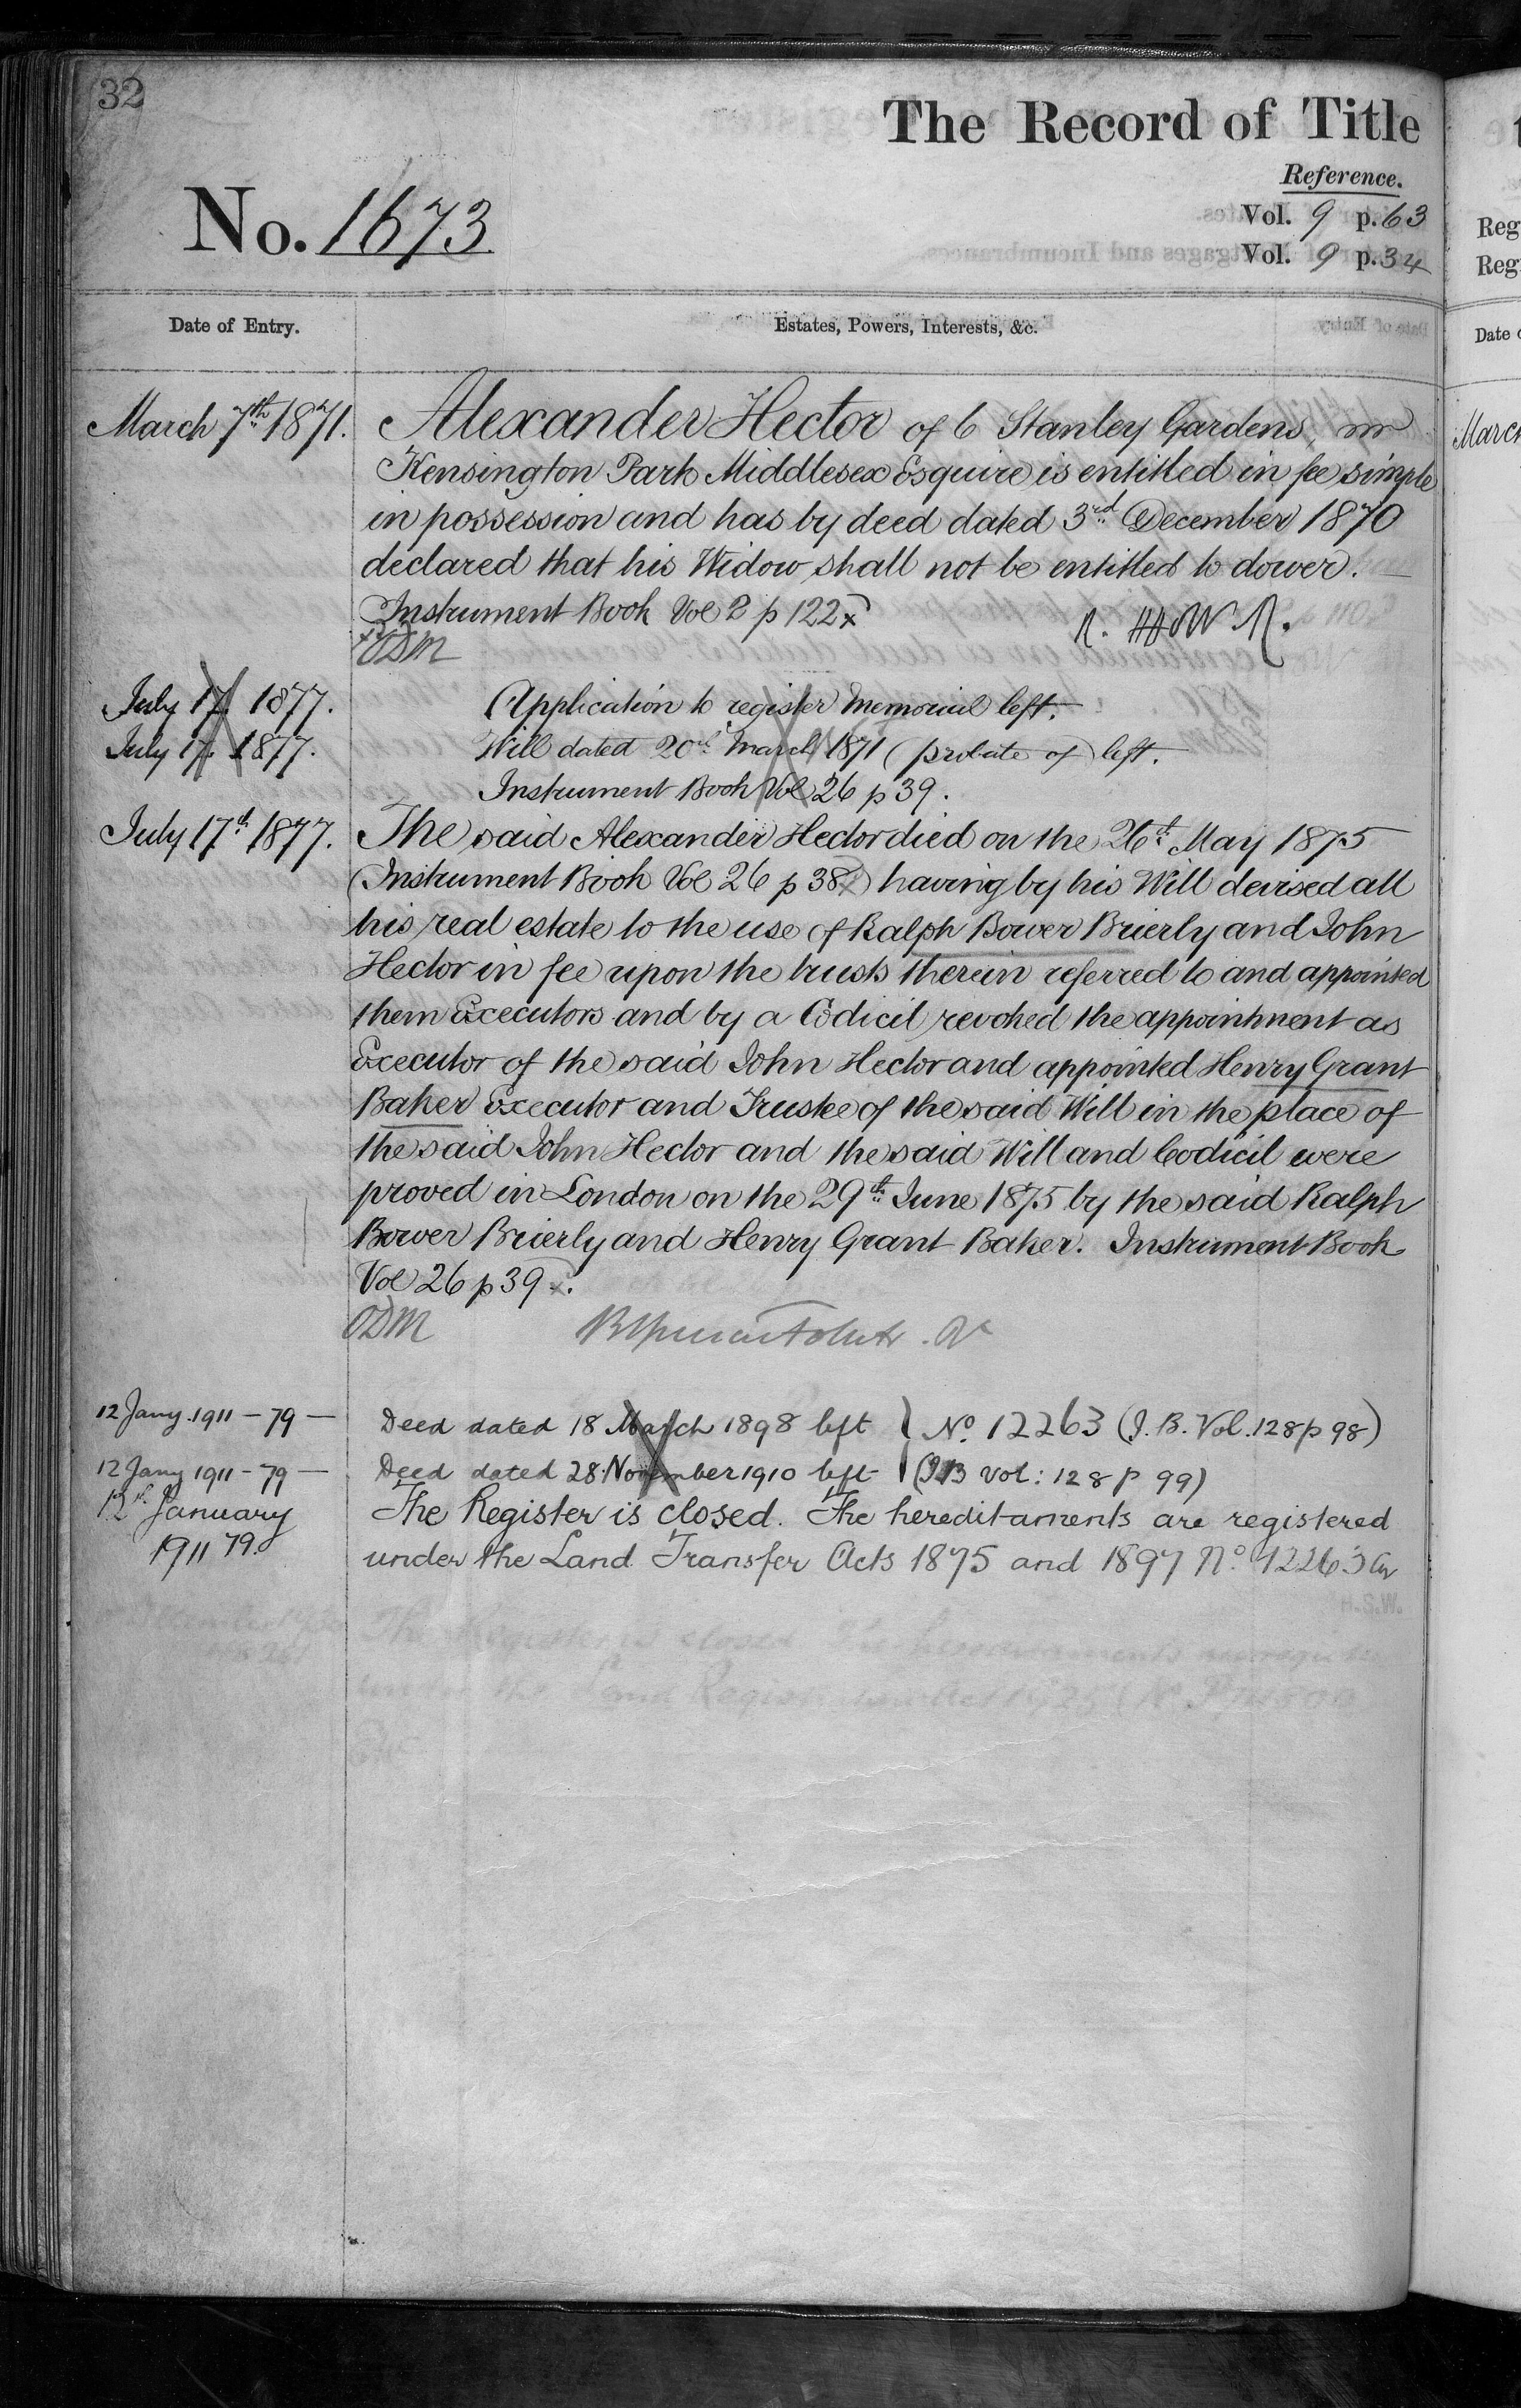 32
The Record of Title
Reference.
No. 1673
Vol. 9 p. 63
Vol. 9 p. 34
Date of Entry.
Estates, Powers, Interests, &c.
March 7th 1871. Alexander Hector of 6 Stanley Gardens, in
Kensington Park Middlesex Esquire is entitled in fee simple
in possession and has by deed dated 3rd December 1870
declared that his Widow shall not be entitled to dower.
Instrument Book Vol 2 p 122 x
ODM
July 17. 1877. Application to register Memorial left.
July 17. 1877. Will dated 20th March 1871 (probate of) left.
Instrument Book Vol 26 p 39.
July 17th 1877. The said Alexander Hector died on the 26th May 1875
(Instrument Book Vol 26 p 38x) having by his Will devised all
his real estate to the use of Ralph Bower Brierly and John
Hector in fee upon the trusts therein referred to and appointed
them Executors and by a Codicil revoked the appointment as
Executor of the said John Hector and appointed Henry Grant
Baker Executor and Trustee of the said Will in the place of
the said John Hector and the said Will and Codicil were
proved in London on the 29th June 1875 by the said Ralph
Bower Brierly and Henry Grant Baker. Instrument Book
Vol 26 p 39 x.
ODM
12 Jany. 1911 - 79 - Deed dated 18 March 1898 left } No. 12263 (I.B. Vol. 128 p 98)
12 Jany 1911 - 79 - Deed dated 28 November 1910 left (IB Vol: 128 p 99)
12th January The Register is closed. The hereditaments are registered
1911 79. under the Land Transfer Acts 1875 and 1897 No. 12263
H.S.W.
The Register is closed The hereditaments
under the Land Registration Act 1925
Reg
Reg
Date
March